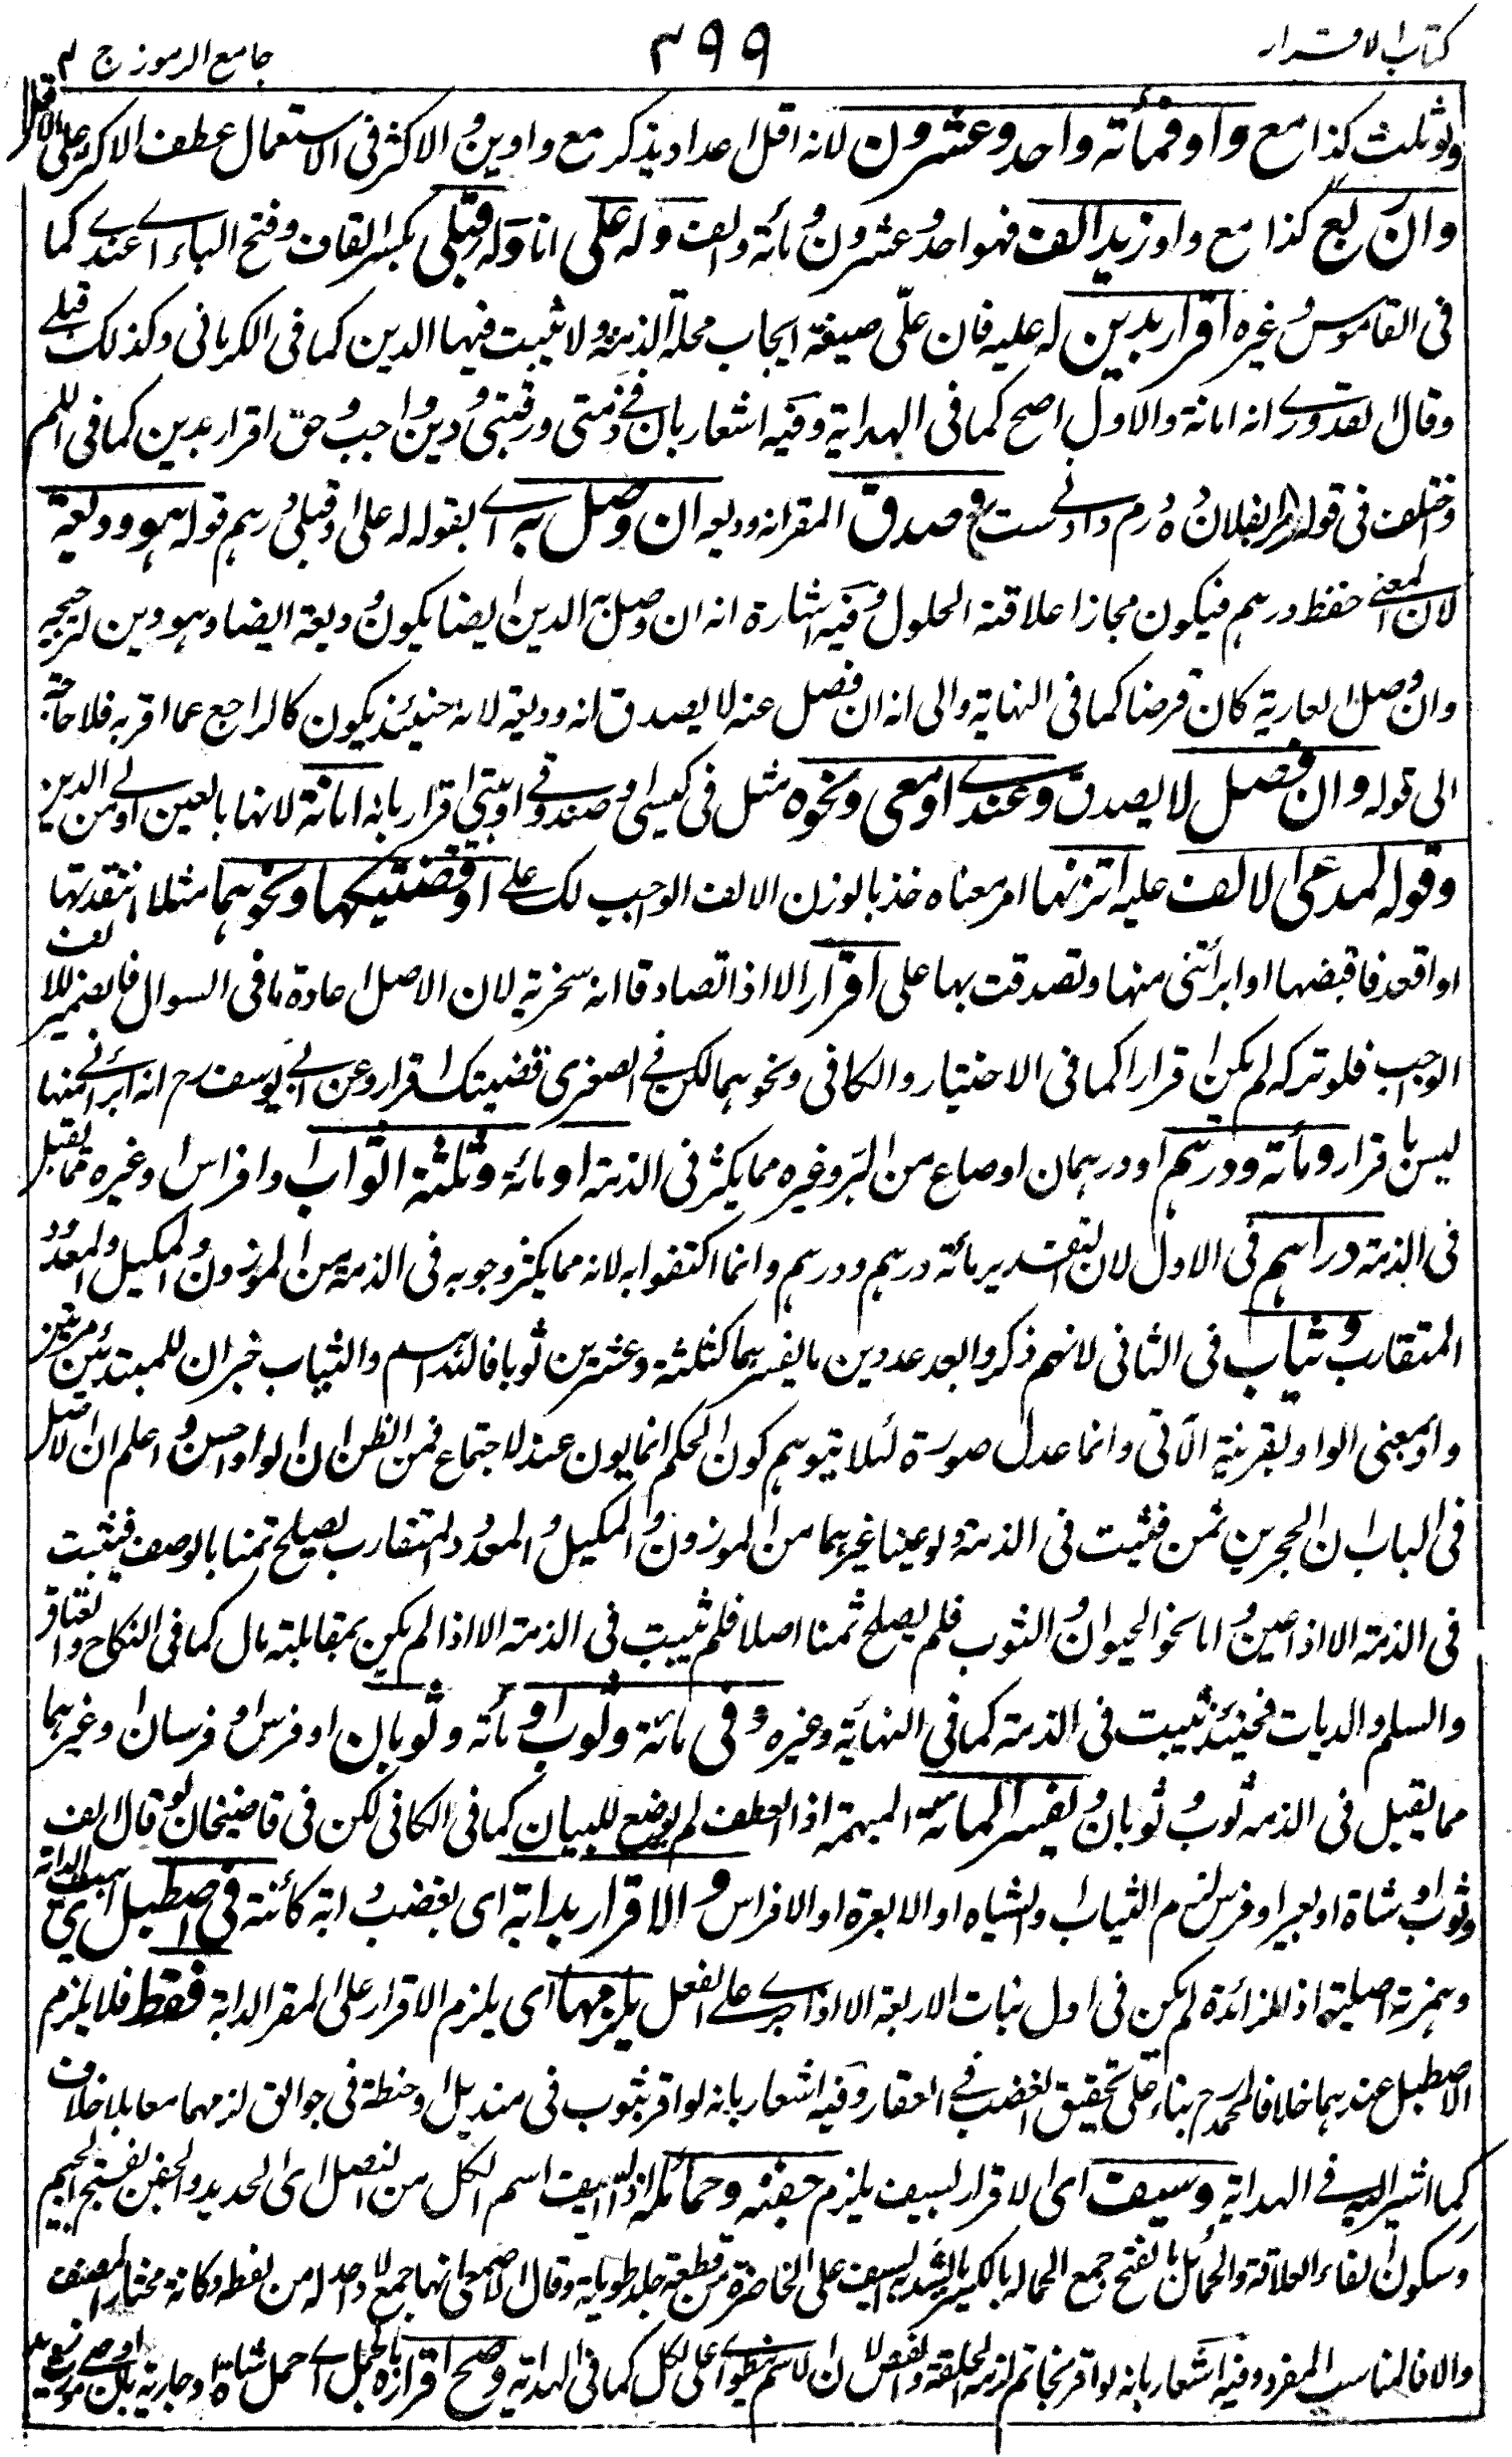 كتاب الاقرار ٣٩٩ جامع الرموز ج ٢
ولو ثلث كذا مع واو فمأته واحد وعشرون لانه اقل اعداد يذكر مع واوين والاكثر فى الاستعمال عطف الاكثر على الاقل
وان ربع كذا مع واو زيد الف فهو احد وعشرون ومائة والف وله على اناوله وقبلى بكسر القاف وفتح الباء اے عندے كما
فى القاموس وغيره اقرار بدين له عليه فان علىّ صيغة ايجاب محله الذمة ولا يثبت فيها الا الدين كما فى الكرمانى وكذلك قبلے
وقال القدورے انه امانة والاول اصح كما فى الهداية وفيه اشعار بان فے ذمتى ورقبتى ودين واجب وحق اقرار بدين كما فى
واختلف فى قوله مر بفلان ده درم دادنے ست وصدق المقر انه وديعه ان وصل به اے بقوله له على او قبلى درهم قوله هو وديعة
لان المعنے حفظ درهم فيكون مجازا لعلاقة الحلول وفيه اشارة انه ان وصل به الدين ايضا يكون وديعة ايضا وهو دين لترجيحه
وان وصل العارية كان قرضا كما فى النهاية والى انه ان فصل عنه لا يصدق انه وديعة لانه حينئذ يكون كالراجع عما اقر به فلا حاجة
الى قوله وان فصل لا يصدق وعندے او معى ونحوه مثل فى كيسى او صندوقے او بيتى اقرار بانه امانة لانها بالعين اولے من الدين
وقوله لمدعى الالف عليه اتزنها امر معناه خذ بالوزن الالف الواجب لك علے او قضيتكها ونحوهما مثلا انتقدتها
او اقعد فاقبضها او ابرأتنى منها وتصدقت بها على اقرار الا اذا تصادقا انه سخرية لان الاصل اعادة ما فى السوال فالضمير للالف
الواجب فلو تركه لم يكن اقرارا كما فى الاختيار والكافى ونحوهما لكن فے الصغرى قضيتك اقرار وعن ابے يوسف رح انه ابرأتنے منها
ليس باقرار ومائة ودرهم او درهمان او صاع من البرّ وغيره مما يكثر فى الذمة او مائة وثلثة اثواب وافراس وغيره مما يقبل
فى الذمة دراهم فى الاول لان التقدير مائة درهم ودرهم وانما اكتفوا به لانه مما يكثر وجوبه فى الذمة من الموزون والمكيل والمعدود
المتقارب وثياب فى الثانى لانهم ذكروا بعد عددين ما يفسرهما كثلثة وعشرين ثوبا فالدراهم والثياب خبران للمبتدئين مرتين
واو بمعنى الواو بقرينة الآتى وانما عدل صورة لئلا يتوهم كون الحكم انما يون عند الاجتماع فمن الظن ان الواو احسن واعلم ان الاصل
فى الباب ان الحجرين ثمن فيثبت فى الذمة ولو عينا غيرهما من الموزون والمكيل والمعدود المتقارب يصلح ثمنا بالوصف فيثبت
فى الذمة الا اذا عين واما نحو الحيوان والثوب فلم يصلح ثمنا اصلا فلم يثبت فى الذمة الا اذا لم يكن بمقابلة مال كما فى النكاح والعتاق
والسلم والديات فحينئذ يثبت فى الذمة كما فى النهاية وغيره وفى مائة وثوب او مأته وثوبان او فرس او فرسان وغيرهما
مما يقبل فى الذمه ثوب وثوبان ويفسر المائة المبهمة اذ العطف لم يوضع للبيان كما فى الكافى لكن فى قاضيخان لو قال الف
وثوب او شاة او بعير او فرس لزم الثياب والشياه او الابعرة او الافراس والاقرار بدابة اى بغضب دابة كائنة فى اصطبل اى بيت الدابة
وهمزته اصلية اذ الزائدة لم يكن فى اول بنات الاربعة الا اذا جرے علے الفعل يلزمها اى يلزم الاقرار على المقر الدابة فقط فلا يلزم
الاصطبل عندهما خلافا لمحمد رح بناء على تحقيق الغضب فے العقار وفيه اشعار بانه لو اقر بثوب فى منديل او حنطة فى جوالق لزمهما معا بلا خلاف
كما اشير اليه فے الهداية وسيف اى الاقرار لسيف يلزم جفنه وحمائله اذ السيف اسم الكل من النصل اى الحديد والجفن بفتح الجيم
وسكون الفاء العلاقة والحمائل بالفتح جمع الحماله بالكسر ما يشد به السيف على الخاصرة من قطعة جلد طويلة وقال الاصمعى انها جمع لا واحد له من لفظه وكانه مختار المصنف
والا فالمناسب المفرد وفيه اشعار بانه لو اقر بخاتم لزمه الحلقة والفص لان الاسم ينطوے على الكل كما فى الهداية وصح اقراره بالحمل اے حمل شاة او جارية بان